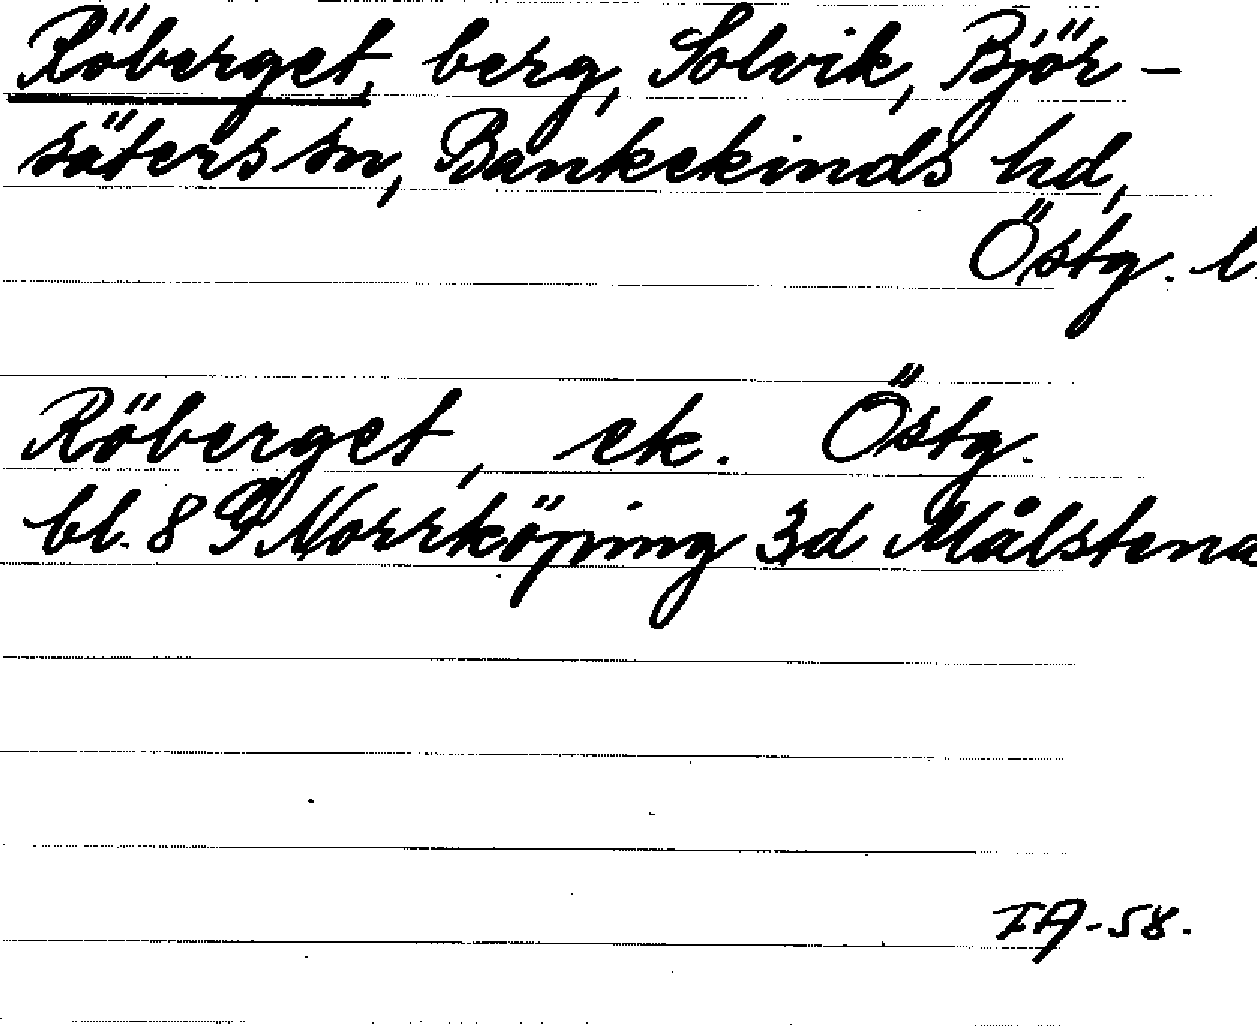 Röberget, berg, Solvik, Björ-
säters sn, Bankekinds hd,
Östg. l.
Röberget, ek. Östg.
bl. 8 G Norrköping 3d Målstena
IA-58.